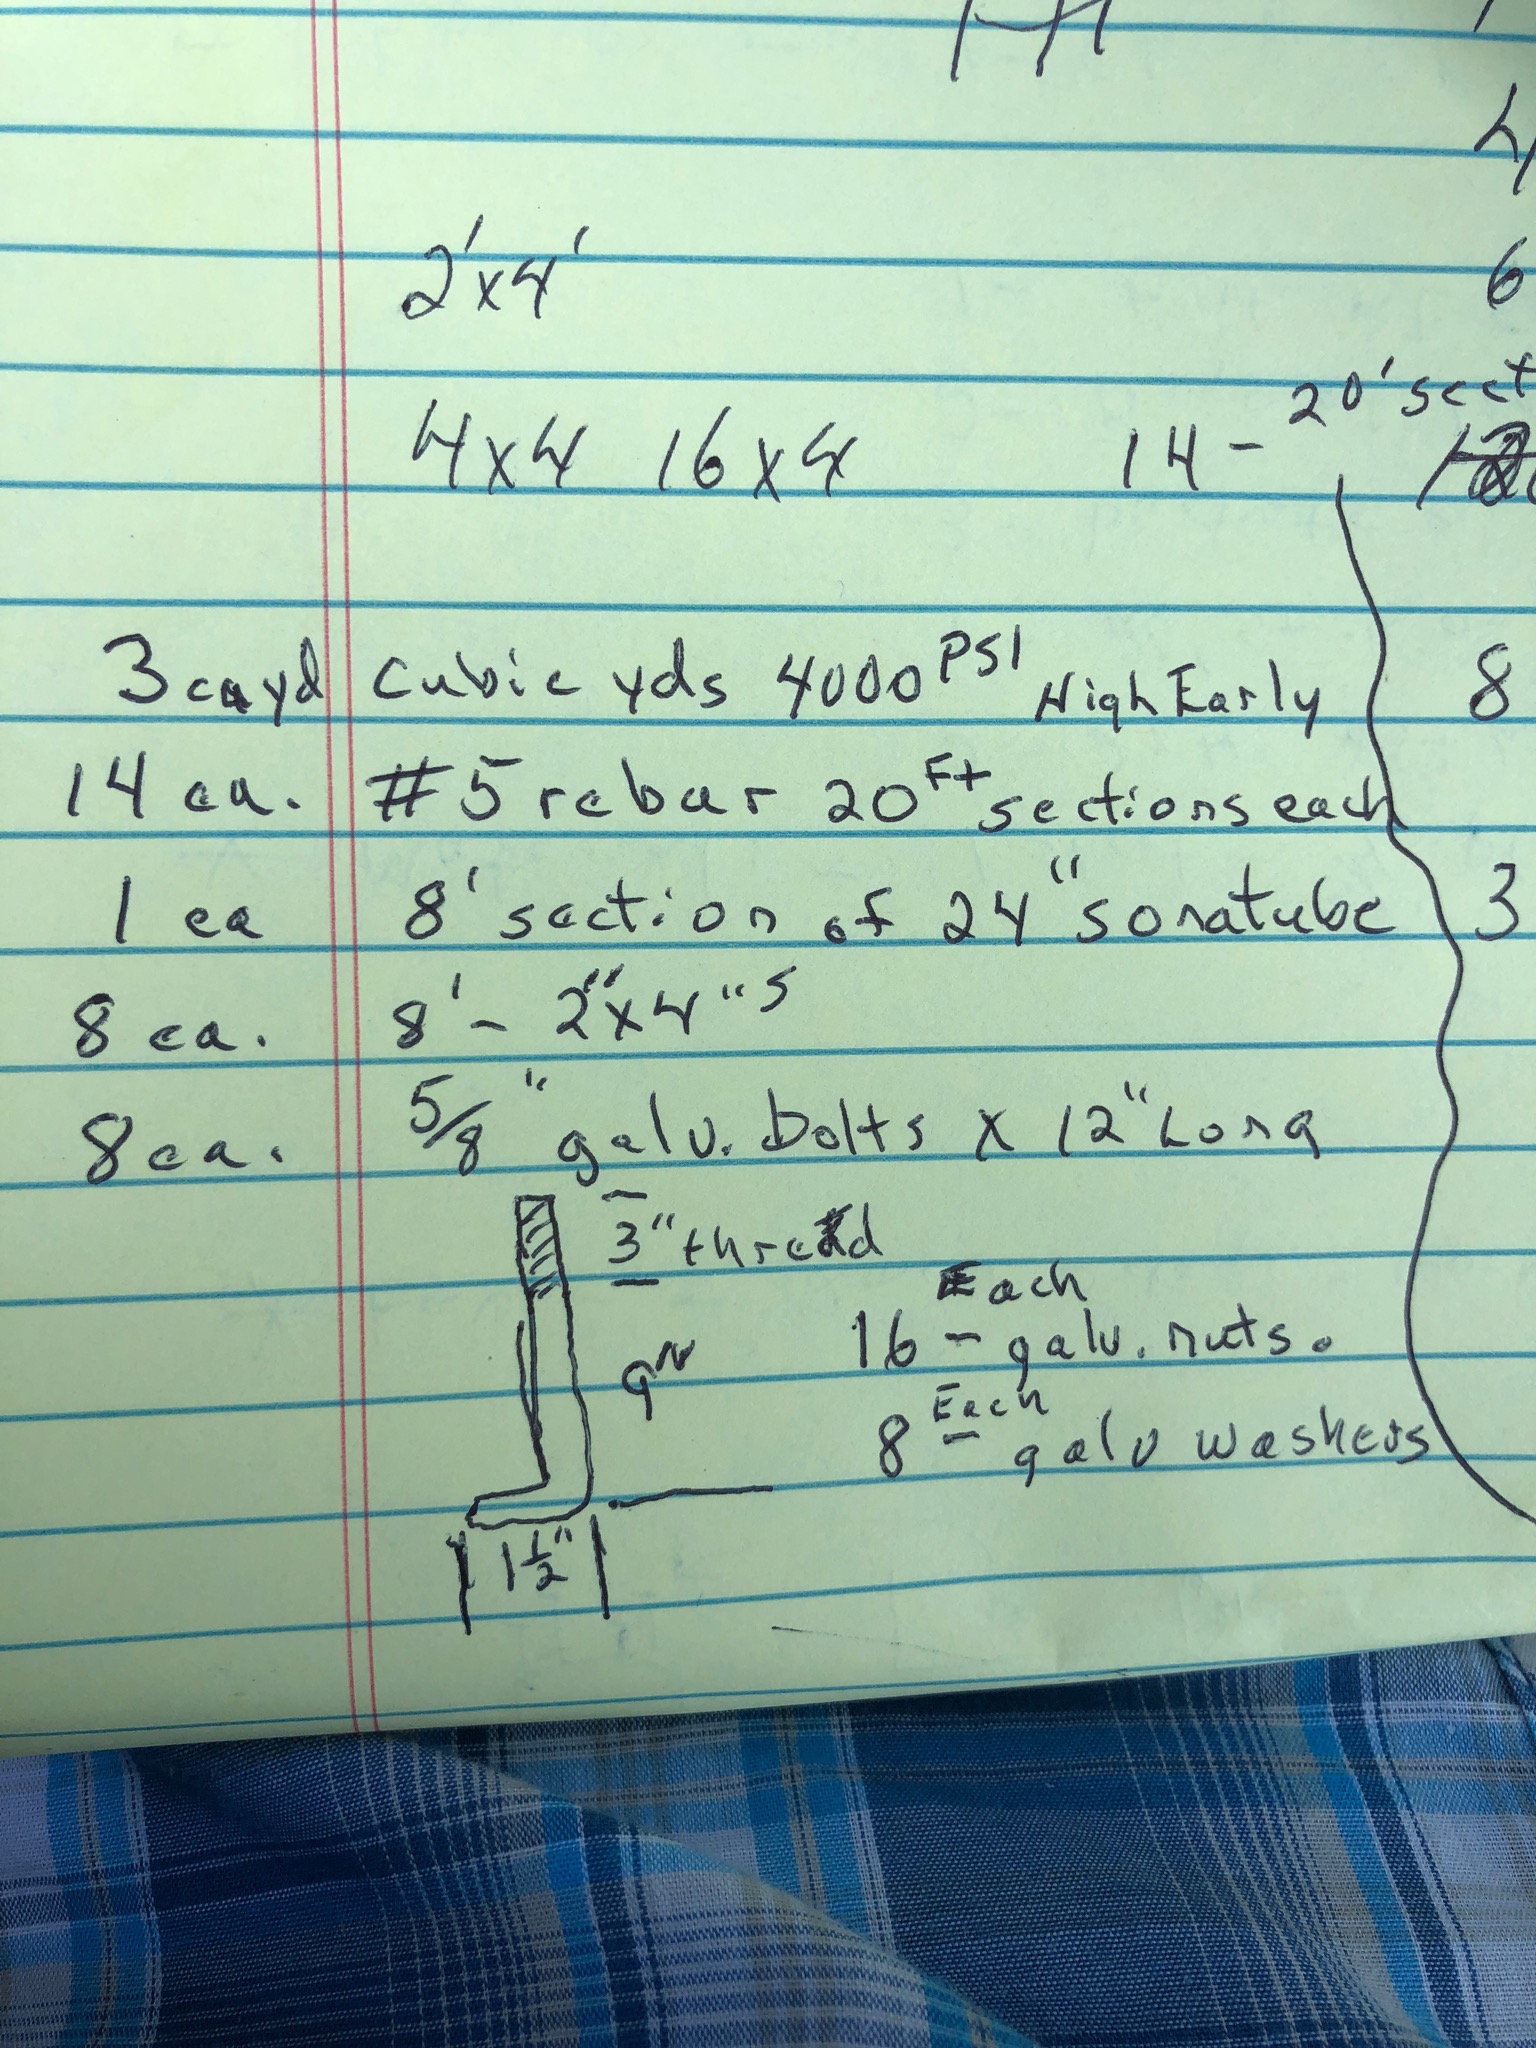 4
2'x4'
6
20' sect
4x4 16x4 14 -
3 cayd cubic yds 4000 PSI High Early
8
14 ea. #5 rebar 20 Ft sections each
1 ea 8' section of 24" sonatube
3
8 ea. 8' - 2"x4"s
8 ea. 5/8" galv. bolts x 12" Long
3" thread
Each
16 - galv. nuts.
9"
Each
8 - galv washers
1 1/2"